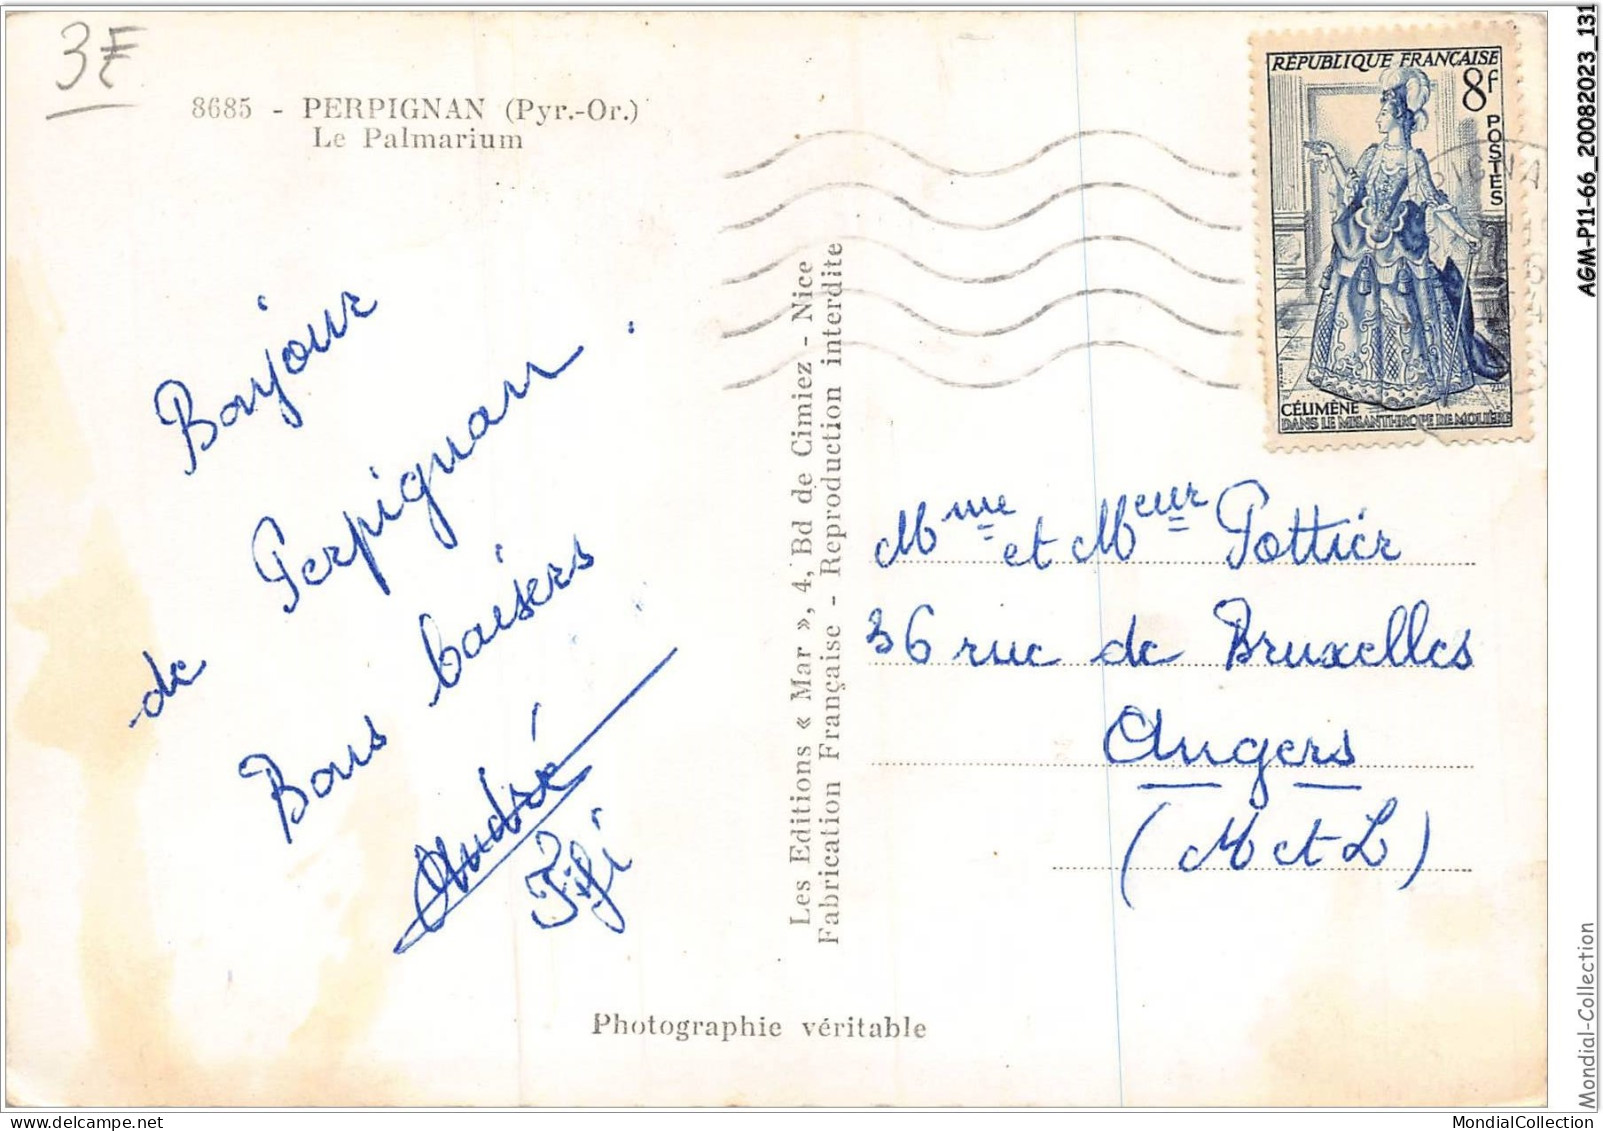 3F
8685 - PERPIGNAN (Pyr.-Or.)
Le Palmarium
RÉPUBLIQUE FRANÇAISE
8f
POSTES
CÉLIMÈNE
DANS LE MISANTHROPE DE MOLIÈRE
Bonjour
de Perpignan.
Bons baisers
André
Fifi
Les Editions « Mar », 4, Bd de Cimiez - Nice
Fabrication Française - Reproduction interdite
Mme et Meur Pottier
36 rue de Bruxelles
Angers
(M et L)
Photographie véritable
AGM-P11-66_20082023_131
Mondial-Collection
MondialCollection